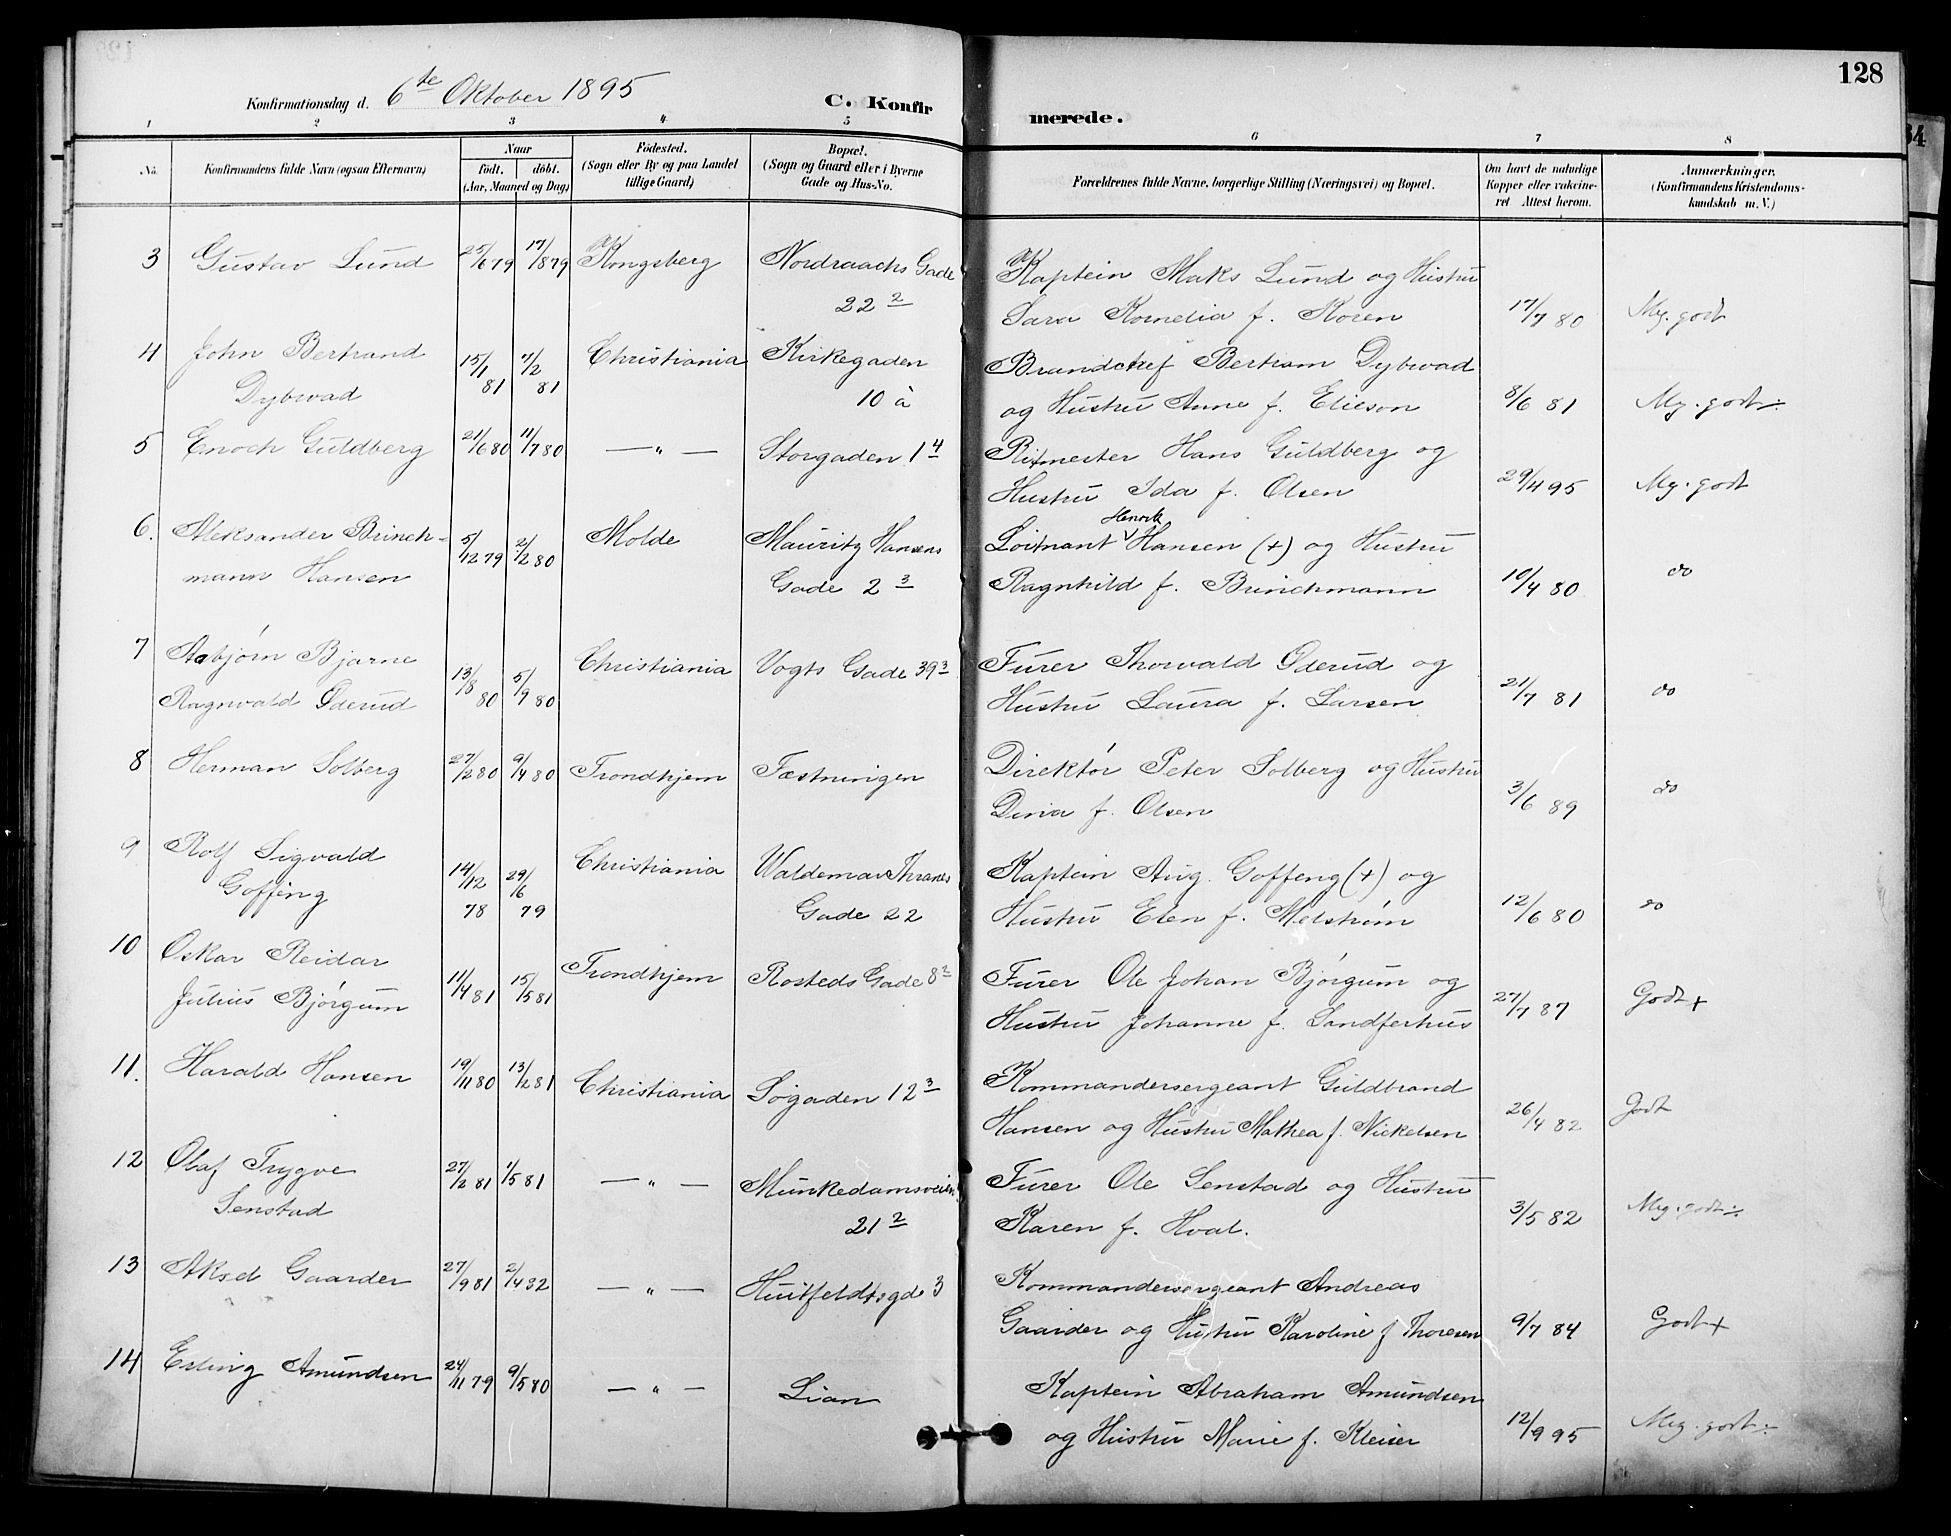 128
Konfirmationsdag d. 6te Oktober 1895
C. Konfirmerede.
1 2 3 4 5 6 7 8
No. Konfirmandens fulde Navn (ogsaa Efternavn) Naar født. døbt. (Aar, Maaned og Dag) Fødested. (Sogn eller By og paa Landet tillige Gaard) Bopæl. (Sogn og Gaard eller i Byerne Gade og Hus-No. Forældrenes fulde Navne, borgerlige Stilling (Næringsvei) og Bopæl. Om havt de naturlige Kopper eller vakcineret Attest herom. Anmærkninger. (Konfirmandens Kristendomskundskab m. V.)
3 Gustav Lund 25/6 79 17/8 79 Kongsberg Nordraachs Gade Kaptein Maks Lund og Hustru
22 2 Sara Kornelia f. Koren 17/7 80 Mg. godt
4 John Bertrand 15/1 81 7/2 81 Christiania Kirkegaden Brandchef Bertram Dybwad
Dybwad 10 a og Hustru Anne f. Elieson 8/6 81 Mg. godt ÷
5 Enoch Guldberg 21/6 80 11/7 80 — " — Storgaden 1 4 Ritmester Hans Guldberg og
Hustru Ida f. Olsen 29/4 95 Mg. godt
6. Aleksander Brinch- 5/12 79 2/2 80 Molde Mauritz Hansens Løitnant Henrik Hansen (+) og Hustru
mann Hansen Gade 2 3 Ragnhild f. Brinchmann 10/4 80 do
7 Asbjørn Bjarne 13/8 80 5/9 80 Christiania Vogts Gade 39 3 Furer Thorvald Øderud og
Ragnvald Øderud Hustru Laura f. Larsen 21/7 81 do
8 Herman Solberg 27/2 80 9/4 80 Trondhjem Fæstningen Direktør Peter Solberg og Hustru
Dina f. Olsen 3/6 89 do
9 Rolf Sigvald 14/12 78 29/6 79 Christiania Waldemar Thranes Kaptein Aug. Goffeng (+) og
Goffeng Gade 22 Hustru Elen f. Melstrøm 12/6 80 do
10 Oskar Reidar 11/4 81 15/5 81 Trondhjem Rosteds Gade 8 2 Furer Ole Johan Bjørgum og
Julius Bjørgum Hustru Johanne f. Sandferhus 27/7 87 Godt +
11. Harald Hansen 19/11 80 13/2 81 Christiania Søgaden 12 3 Kommandersergeant Guldbrand
Hansen og Hustru Mathea f. Nickelsen 26/4 82 Godt
12 Olaf Trygve 27/2 81 1/5 81 — " — Munkedamsveien Furer Ole Senstad og Hustru
Senstad 21 2 Karen f. Hval. 3/5 82 Mg. godt ÷
13 Aksel Gaarder 27/9 81 2/4 82 — " — Huitfeldtsgde 3 Kommandersergeant Andreas
Gaarder og Hustru Karoline f Thoresen 9/7 84 Godt +
14 Erling Amundsen 24/11 79 9/5 80 — " — Lian Kaptein Abraham Amundsen
og Hustru Marie f. Kleiser 12/9 95 Mg. godt ÷